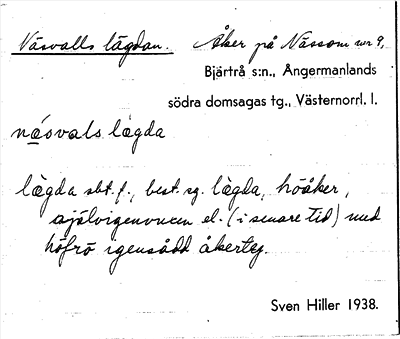 Väsvalls lägdan. Åker på Nässom nr 9,
Bjärtrå s:n., Ångermanlands
södra domsagas tg., Västernorrl. l.
næsvals lægda
lægda sbt. f., best. sg. lægda, höåker,
självigenvuxen el. (i senare tid) med
höfrö igensådd åkerteg.
Sven Hiller 1938.